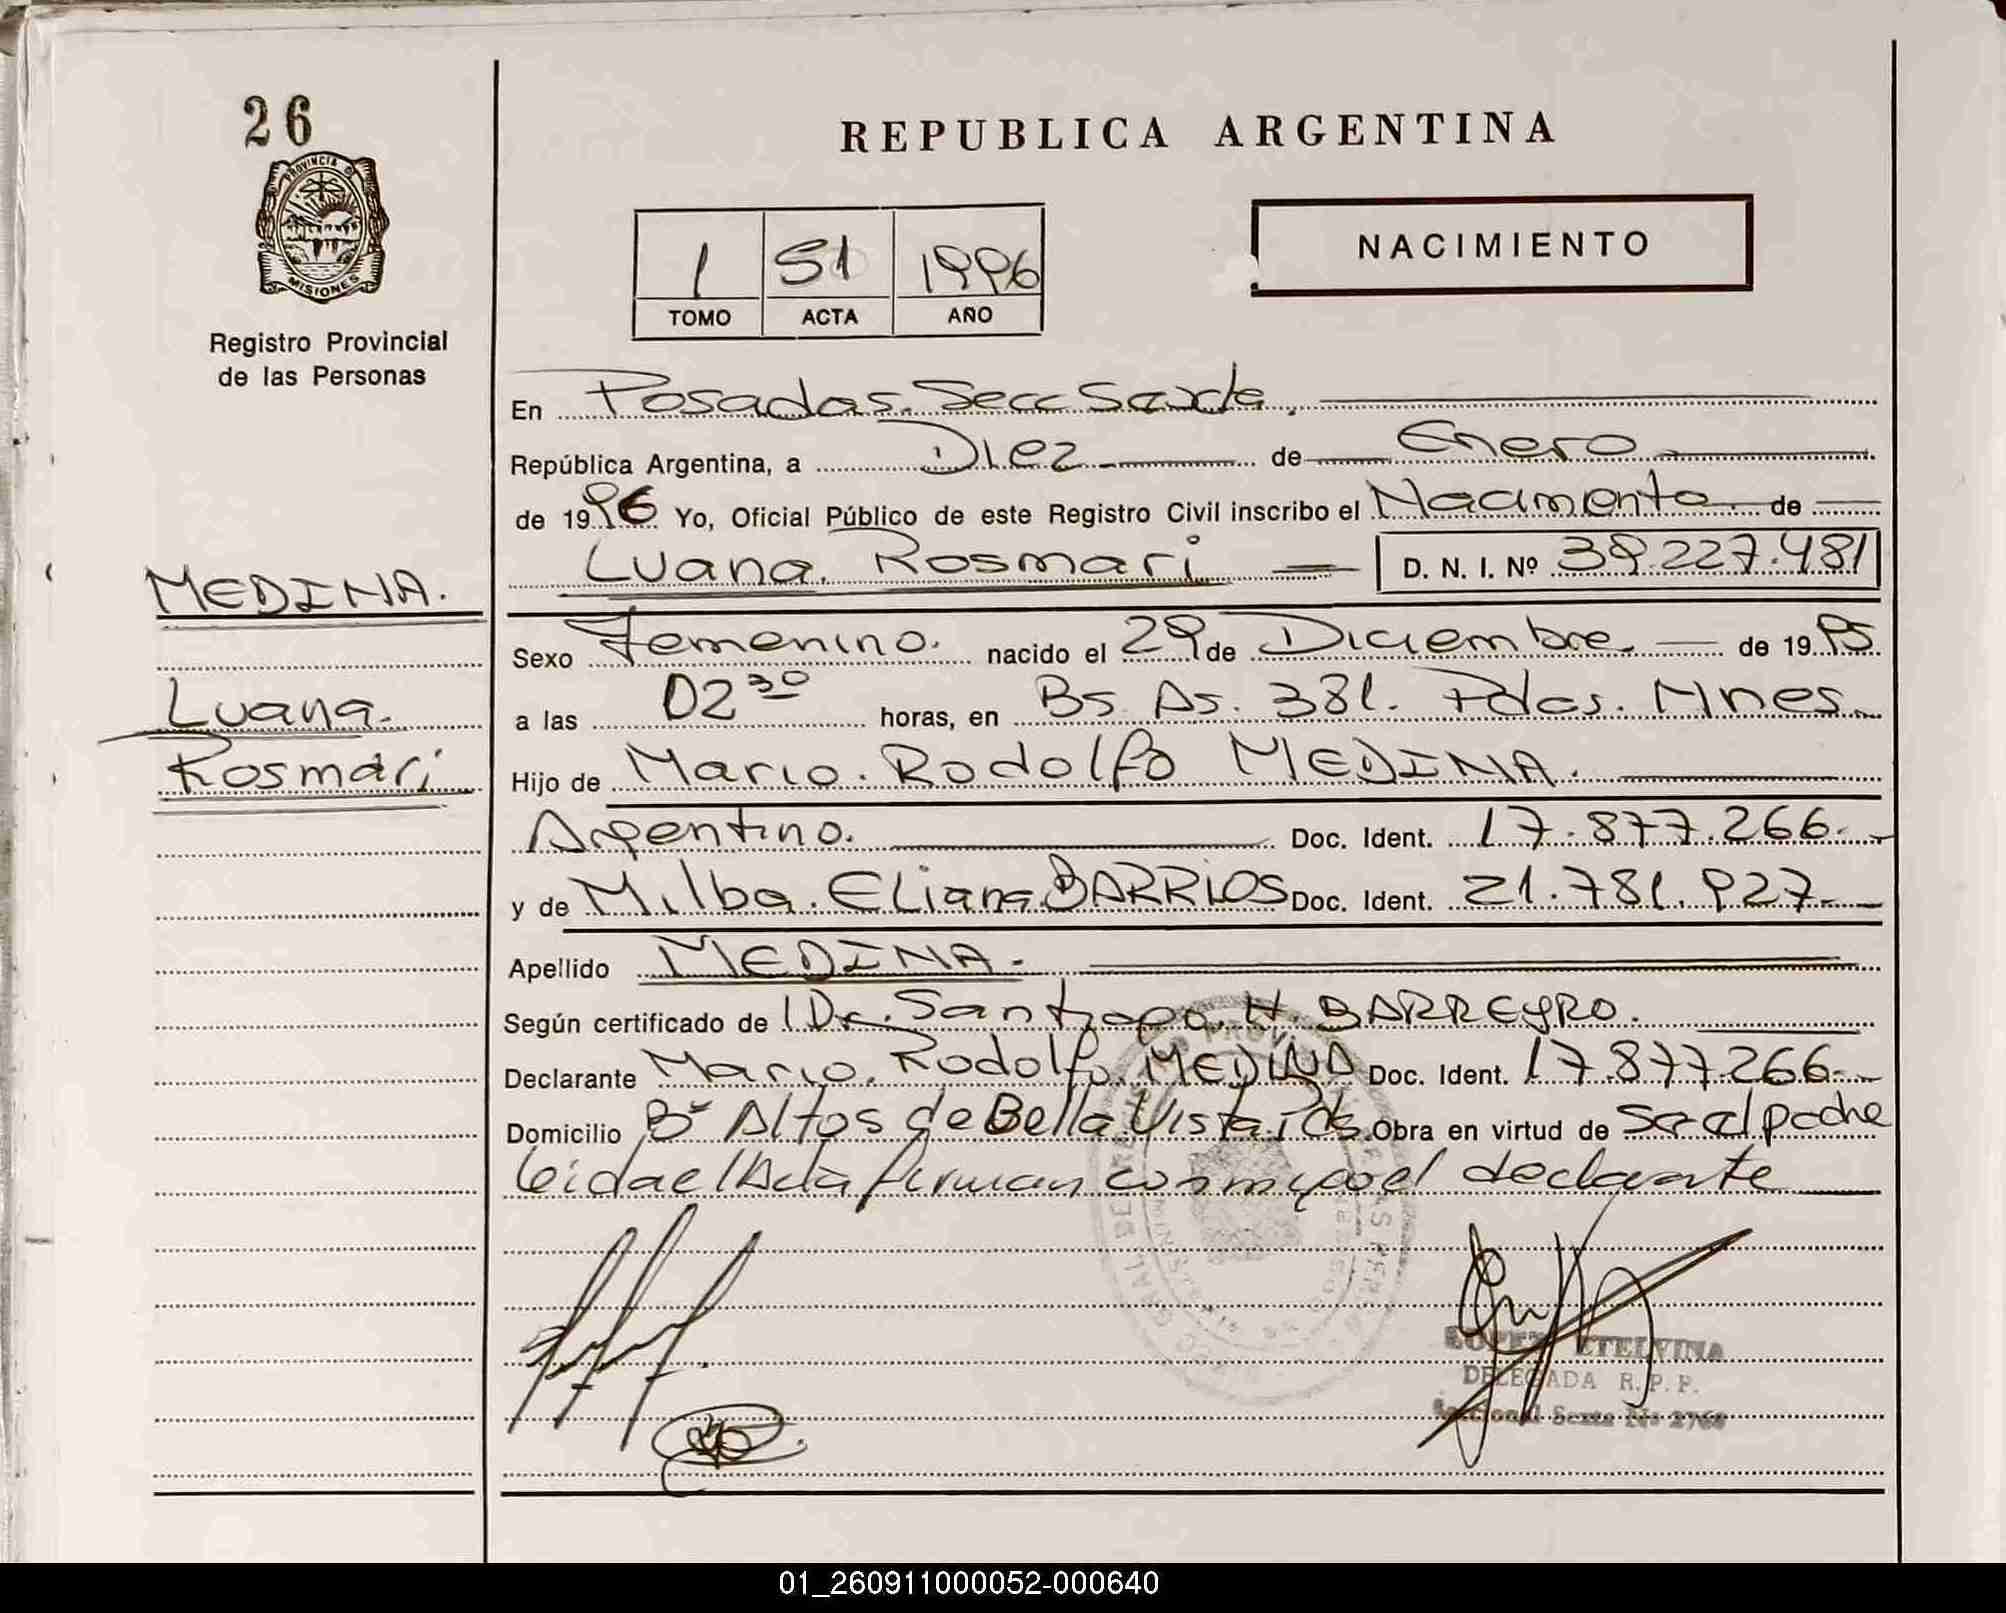 26
PROVINCIA DE
MISIONES
Registro Provincial
de las Personas
MEDINA.
Luana
Rosmari
REPUBLICA ARGENTINA
1 51 1996
TOMO ACTA AÑO
NACIMIENTO
En Posadas. Secc Sexta.
República Argentina, a Diez de Enero
de 1996 Yo, Oficial Público de este Registro Civil inscribo el Nacimento de
Luana Rosmari D. N. I. Nº 39.227.481
Sexo Femenino. nacido el 29 de Diciembre de 1995
a las 02 30 horas, en Bs As. 381. Pdas. Mnes
Hijo de Mario. Rodolfo MEDINA.
Argentino. Doc. Ident. 17.877.266.-
y de Milba. Eliana BARRIOS Doc. Ident. 21.781.927
Apellido MEDINA.
Según certificado de Dr. Santiago. H. BARREYRO.
Declarante Mario. Rodolfo. MEDINA Doc. Ident. 17.877.266-
Domicilio Bº Altos de Bella Vista Pds. Obra en virtud de ser el padre
leida el Acta firman conmigo el declarante
ETELVINA
DELEGADA R. P. P.
Seccional Sexta Nº 2768
01_260911000052-000640